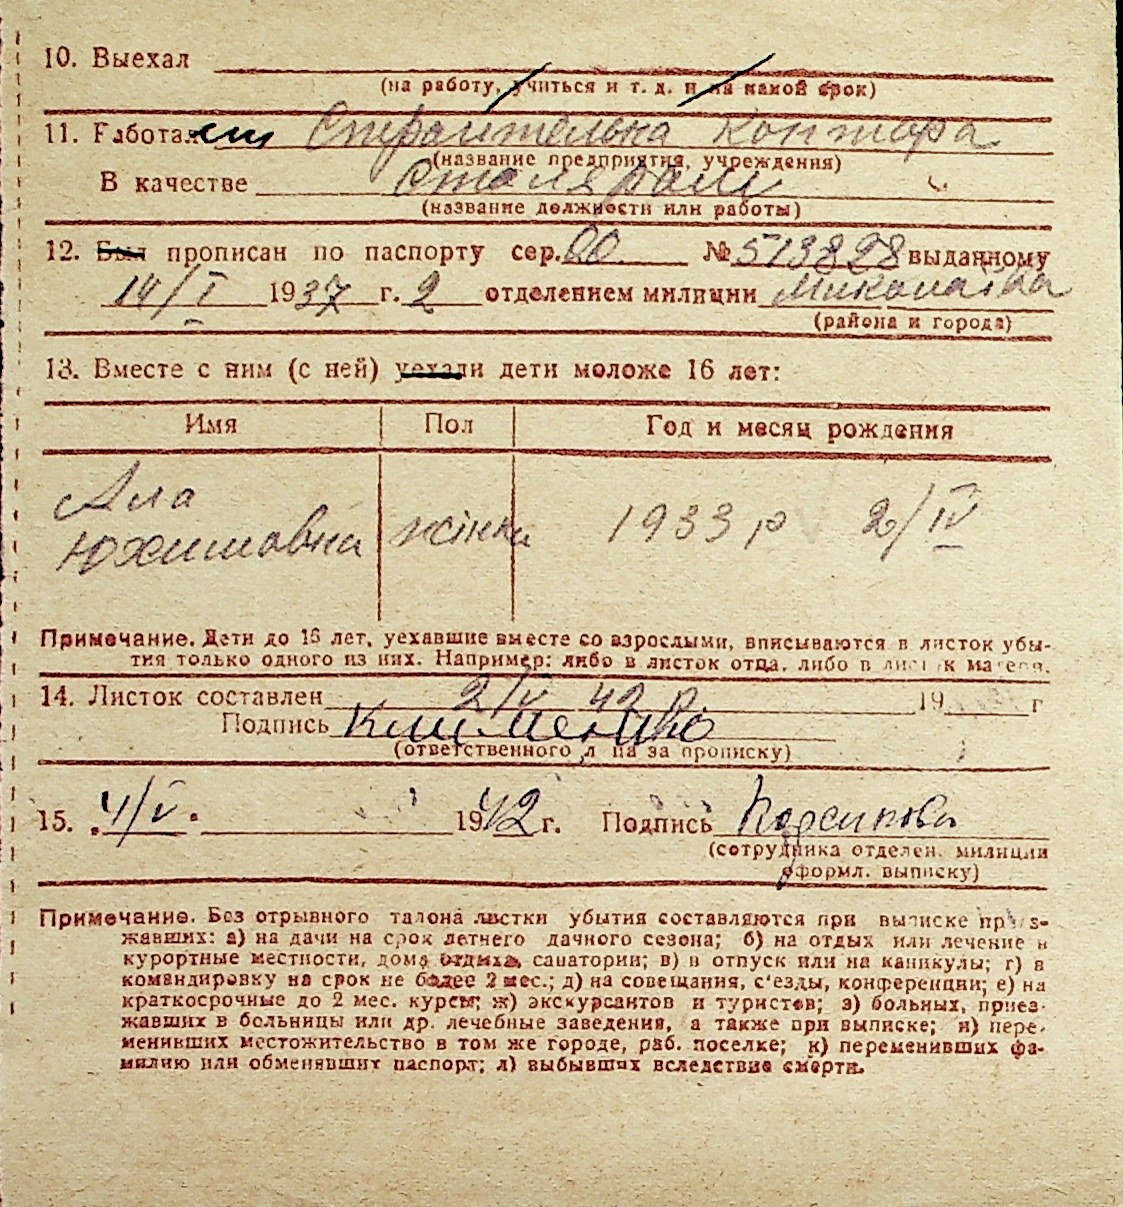 10. Выехал
(на работу, учиться и т. д. и на какой срок)
11. Работает Строительна контора
(название предприятия, учреждения)
В качестве Столяром
(название должности или работы)
12. Был прописан по паспорту сер. № 513828 выданному
14/I 1937 г. 2 отделением милиции Миколаїва
(района и города)
13. Вместе с ним (с ней) уехали дети моложе 16 лет:
Имя Пол Год и месяц рождения
Ала
Юхимовна жінка 1933 р 2/IV
Примечание. Дети до 16 лет, уехавшие вместе со взрослыми, вписываются в листок убы-
тия только одного из них. Например: либо в листок отца, либо в листок матери.
14. Листок составлен 2/V 42 р 19 г
Подпись Клименко
(ответственного л ца за прописку)
15. 4/V. 1942 г. Подпись
(сотрудника отделен. милиции
оформл. выписку)
Примечание. Без отрывного талона листки убытия составляются при выписке приез-
жавших: а) на дачи на срок летнего дачного сезона; б) на отдых или лечение в
курортные местности, дома отдыха, санатории; в) в отпуск или на каникулы; г) в
командировку на срок не более 2 мес.; д) на совещания, с'езды, конференции; е) на
краткосрочные до 2 мес. курсы; ж) экскурсантов и туристов; з) больных, приез-
жавших в больницы или др. лечебные заведения, а также при выписке; и) пере-
менивших местожительство в том же городе, раб. поселке; к) переменивших фа-
милию или обменявших паспорт; л) выбывших вследствие смерти.